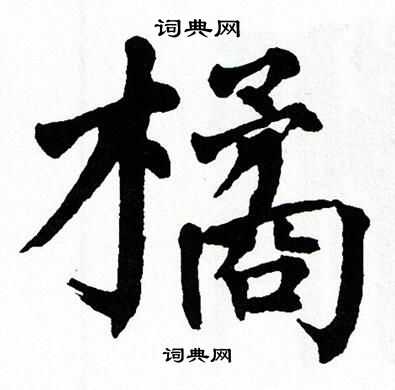 词典网
橘
词典网